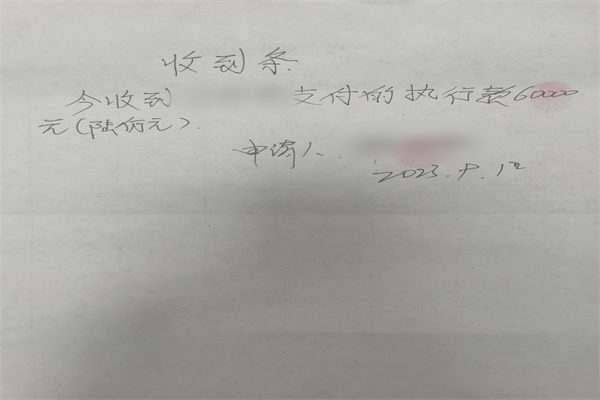 收到条
今收到 支付的执行款60000
元(陆仿元).
申请人.
2023.9.12